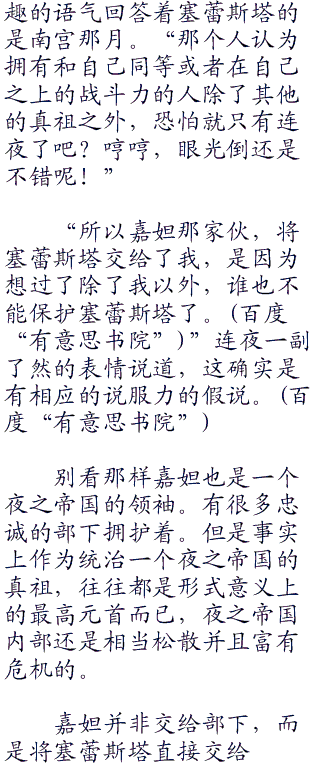 趣的语气回答着塞蕾斯塔的
是南宫那月。“那个人认为
拥有和自己同等或者在自己
之上的战斗力的人除了其他
的真祖之外，恐怕就只有连
夜了吧？哼哼，眼光倒还是
不错呢！”
“所以嘉妲那家伙，将
塞蕾斯塔交给了我，是因为
想过了除了我以外，谁也不
能保护塞蕾斯塔了。(百度
“有意思书院”)”连夜一副
了然的表情说道，这确实是
有相应的说服力的假说。(百
度“有意思书院”)
别看那样嘉妲也是一个
夜之帝国的领袖。有很多忠
诚的部下拥护着。但是事实
上作为统治一个夜之帝国的
真祖，往往都是形式意义上
的最高元首而已，夜之帝国
内部还是相当松散并且富有
危机的。
嘉妲并非交给部下，而
是将塞蕾斯塔直接交给